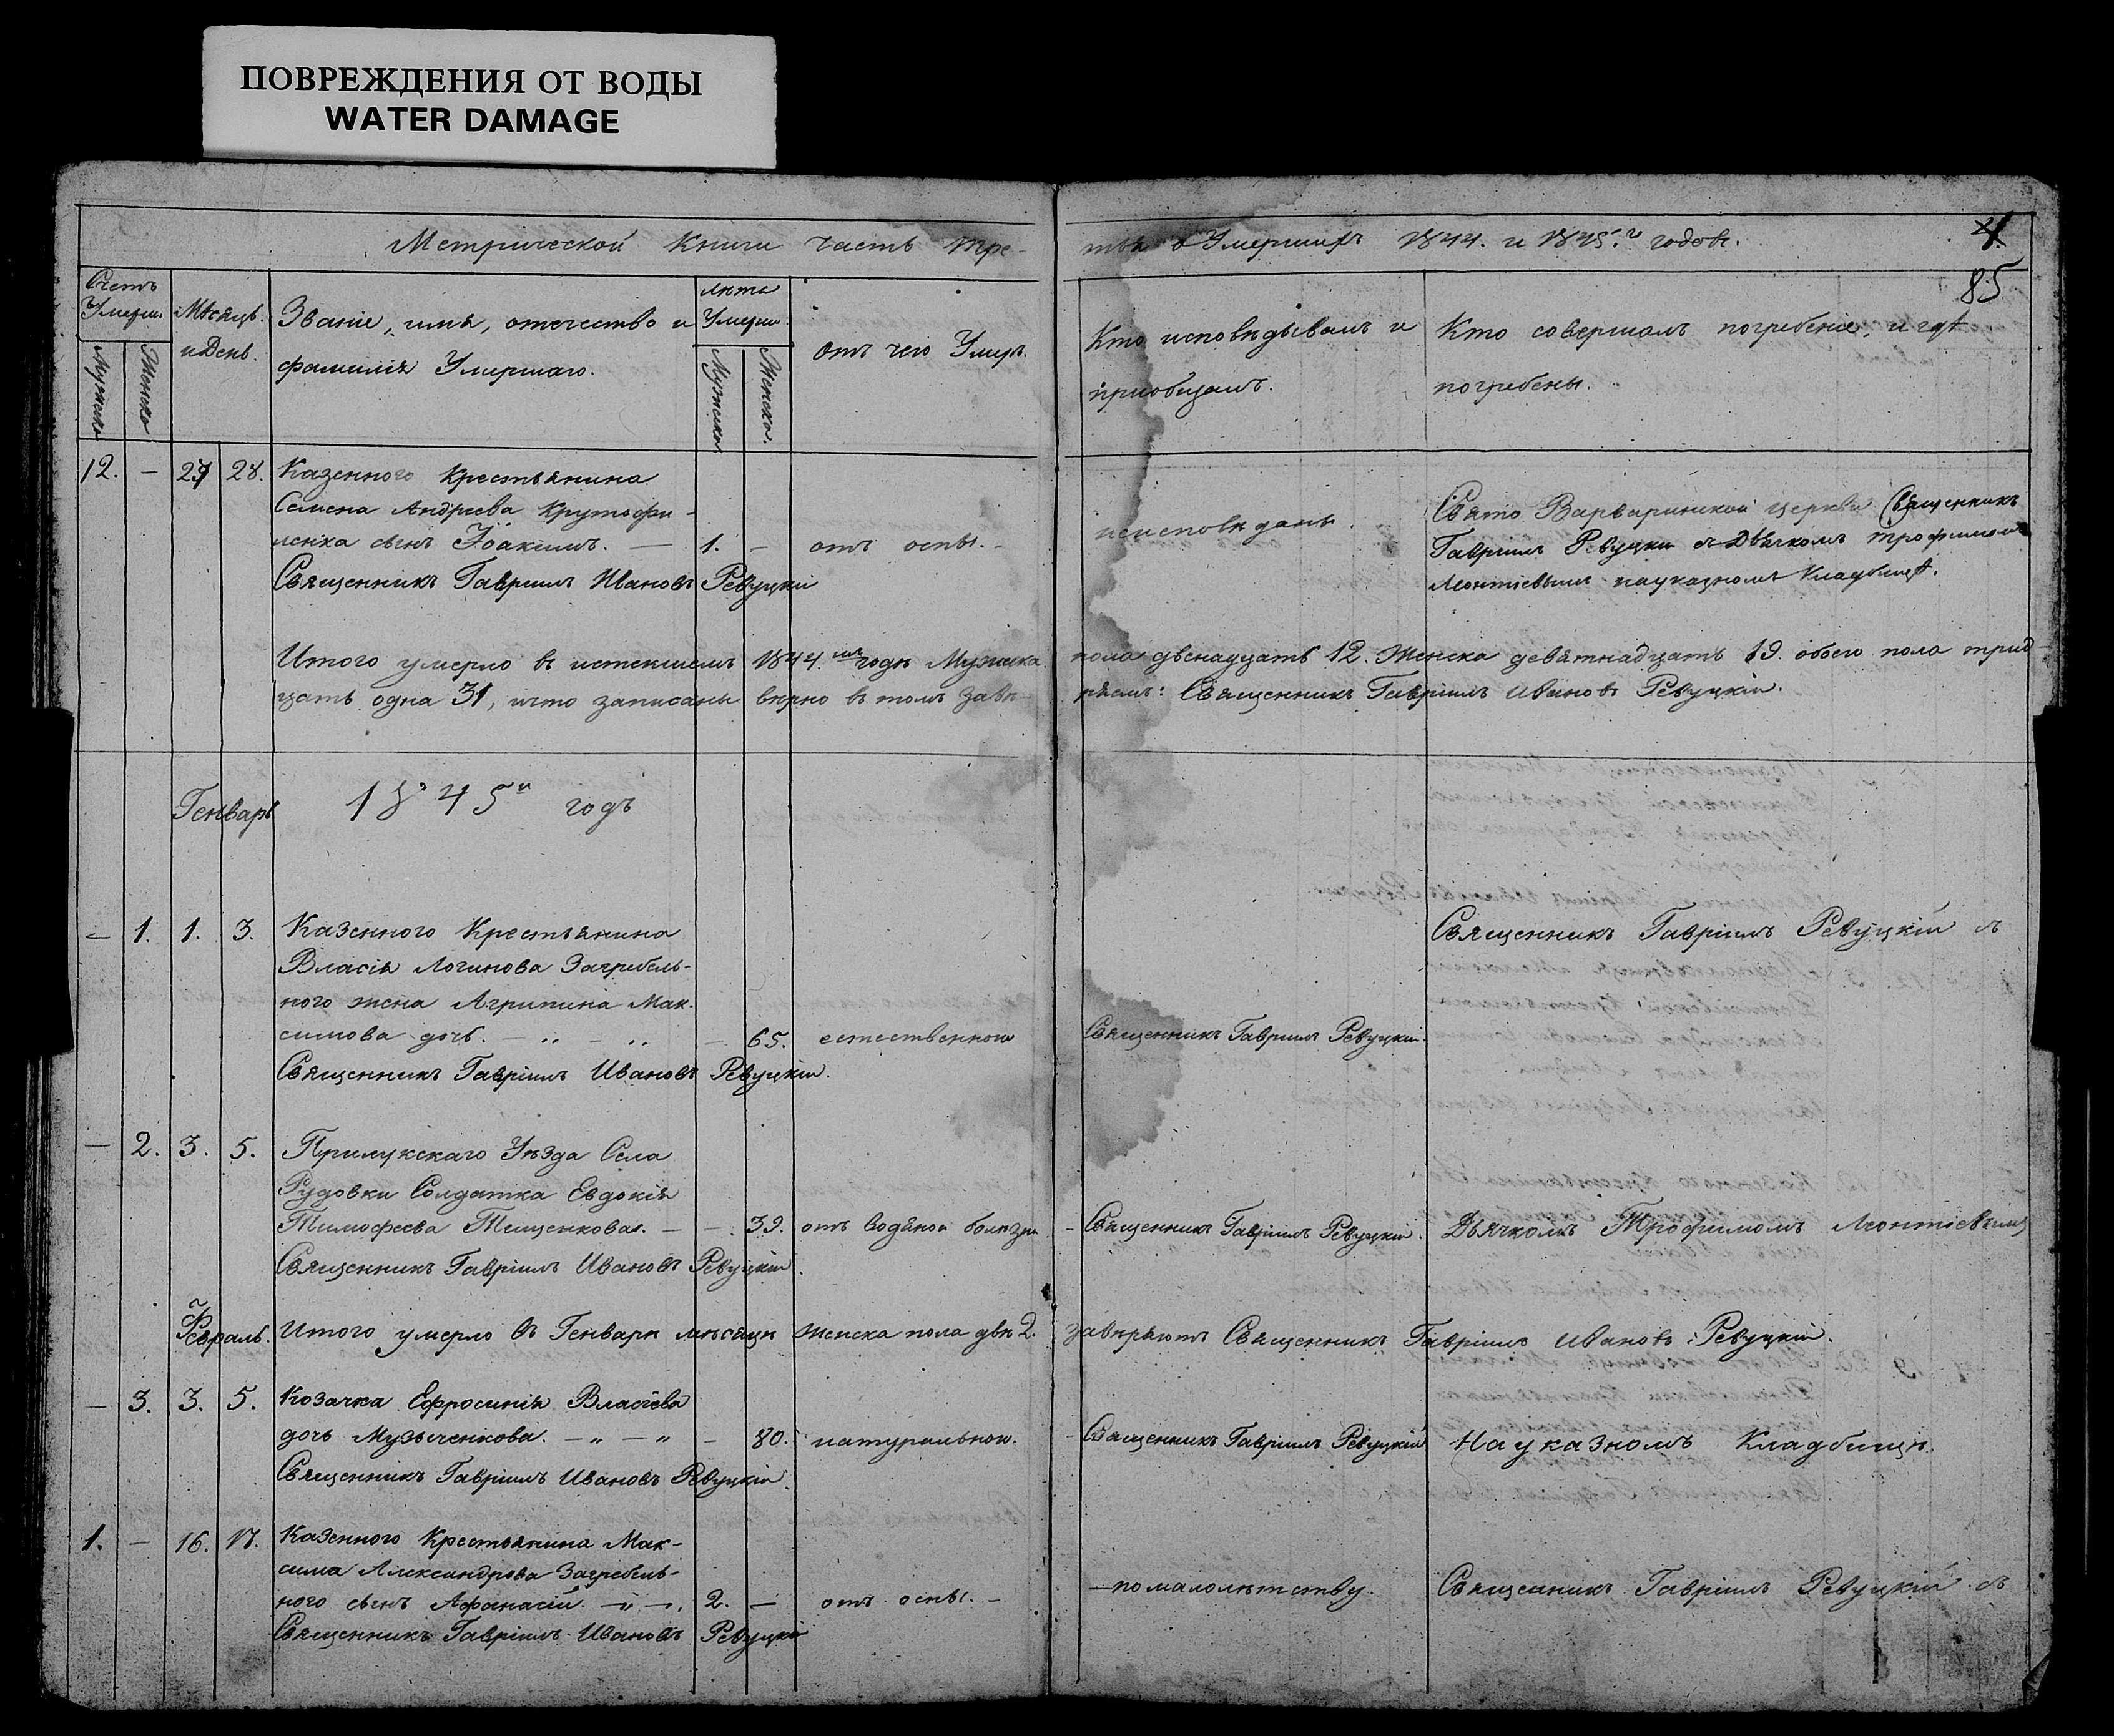 ПОВРЕЖДЕНИЯ ОТ ВОДЫ
WATER DAMAGE
Метрической Книги часть тре-
тья о Умершихъ 1844. и 1845.и годовъ.
4
85
Счетъ Умерш.
Мужеска
Женска
Мѣсяцъ и День.
Званіе, имя, отечество и
фамилія Умершаго.
лѣта Умерш.
Мужеска
Женска.
Отъ чего Умеръ.
Кто исповѣдывалъ и
приобщалъ.
Кто совершалъ погребеніе, и гдѣ
погребены.
12. — 27 28. Казенного Крестьянина
Семена Андреева Крутофи-
ленка сынъ Іоакимъ. — 1. — отъ оспы. —
Священникъ Гавріилъ Ивановъ Ревуцкій
неисповѣданъ.
Свято Варваринской церкви Священникъ
Гавріилъ Ревуцкій съ Дьячкомъ Трофимомъ
Леонтіевымъ на указномъ Кладбищѣ.
Итого умерло въ истекшемъ 1844.мъ годѣ Мужска пола двенадцать 12. Женска девятнадцать 19. обоего пола трид
цать одна 31, что записаны вѣрно въ томъ завѣ-
ряемъ: Священникъ Гавріилъ Ивановъ Ревуцкій.
Генварь 1845и годъ
— 1. 1. 3. Казенного Крестьянина
Власія Логинова Загребель-
ного жена Агрипина Мак-
симова дочь. — „ — „ — 65. естественною
Священникъ Гавріилъ Ивановъ Ревуцкій.
Священникъ Гавріилъ Ревуцкій.
Священникъ Гавріилъ Ревуцкій съ
— 2. 3. 5. Прилукскаго Уѣзда Села
Рудовки Солдатка Евдокія
Тимофеева Тищенковая. — — 39. отъ водяной болѣзни
Священникъ Гавріилъ Ивановъ Ревуцкій.
— Священникъ Гавріилъ Ревуцкій.
Дьячкомъ Трофимомъ Леонтіевымъ
Февраль. Итого умерло въ Генварѣ мѣсяцѣ женска пола двѣ 2. завѣряютъ Священникъ Гавріилъ Ивановъ Ревуцкій.
— 3. 3. 5. Козачка Ефросинія Власіева
дочь Музыченкова. — „ — „ — 80. натуральною.
Священникъ Гавріилъ Ивановъ Ревуцкій.
— Священникъ Гавріилъ Ревуцкій
На указномъ Кладбищѣ.
1. — 16. 17. Казенного Крестьянина Мак-
сима Александрова Загребель-
ного сынъ Афанасій. — „ —. 2. — отъ оспы. —
Священникъ Гавріилъ Ивановъ Ревуцкій
— по малолѣтству.
Священникъ Гавріилъ Ревуцкій съ